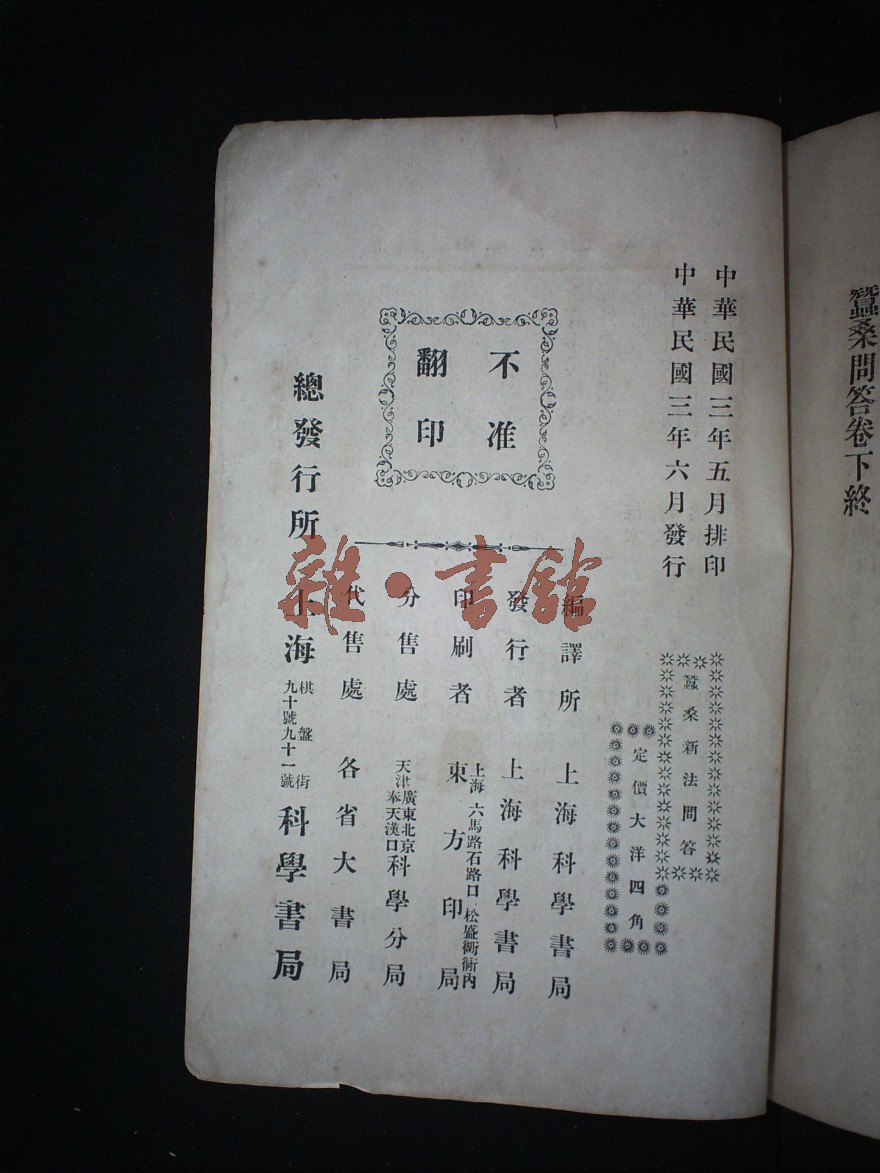 蠶桑問答卷下終
中華民國三年五月排印
中華民國三年六月發行
蠶桑新法問答
定價大洋四角
不准
翻印
編譯所 上海科學書局
發行者 上海科學書局
印刷者 上海 六馬路石路口 松盛衕衖內 東方印局
分售處 天津廣東北京奉天漢口 科學分局
代售處 各省大書局
總發行所 上海 棋盤街九十號九十一號 科學書局
雜·書館